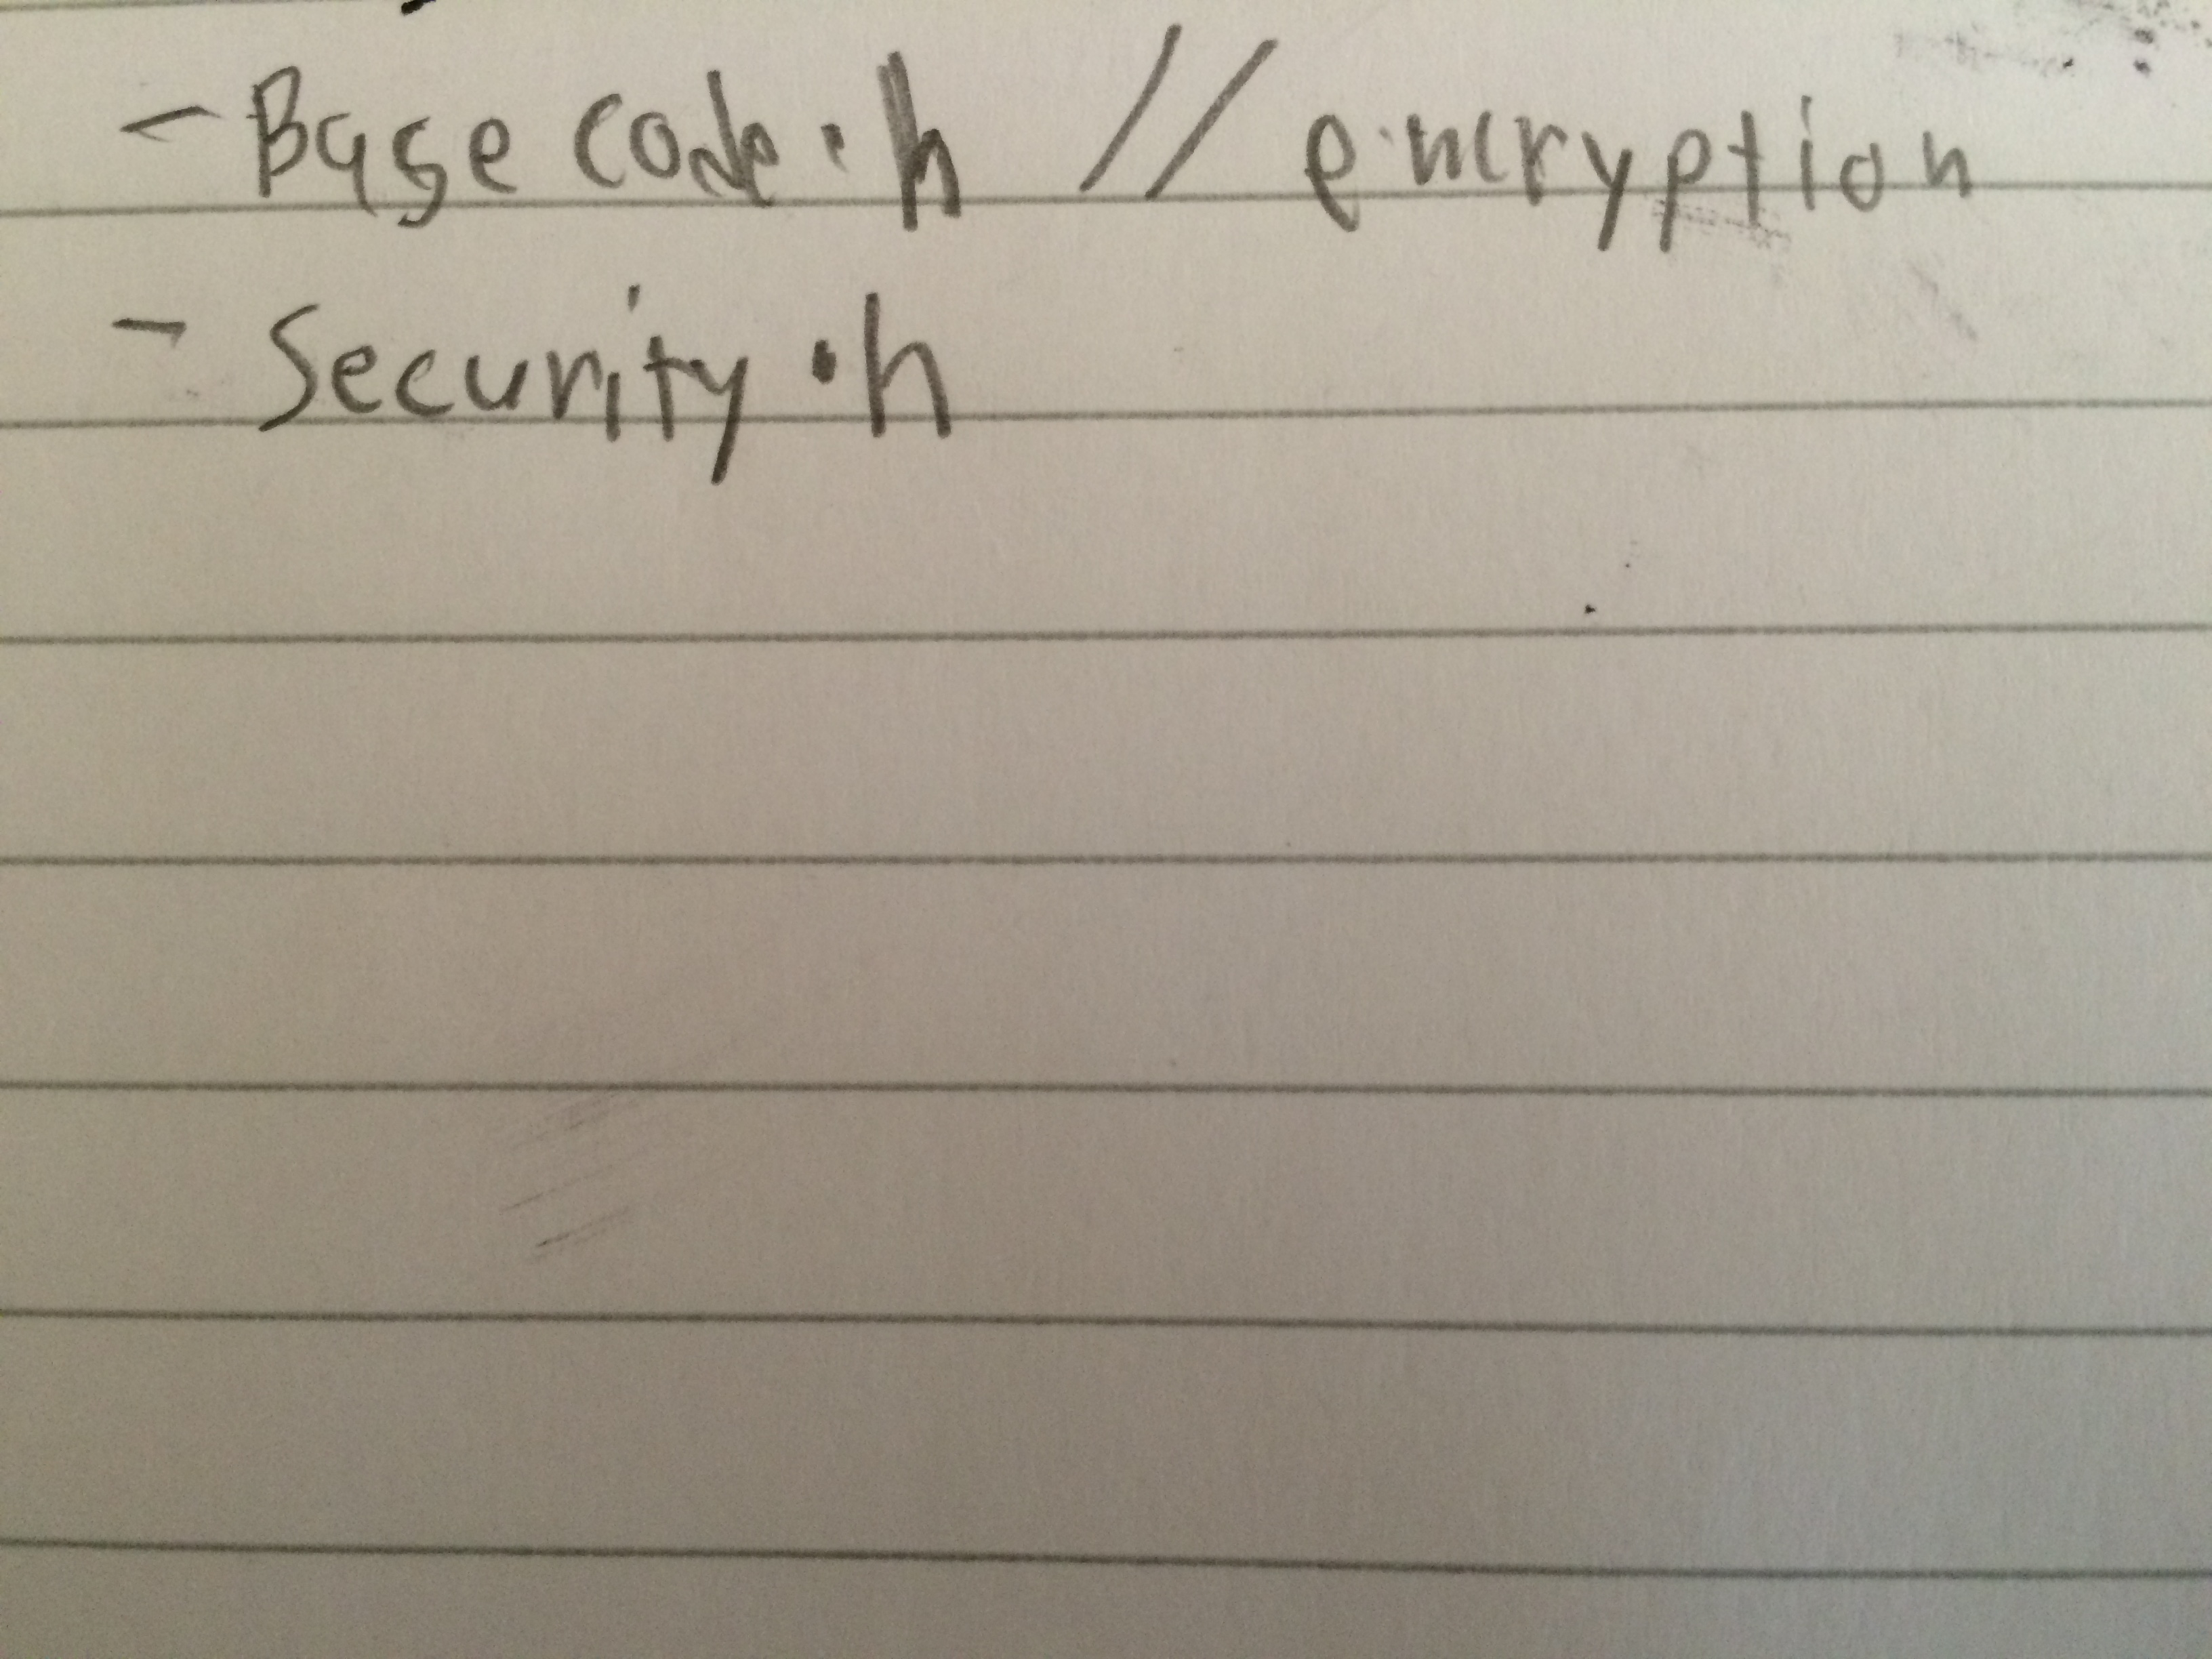 - Base code.h // encryption
- Security.h